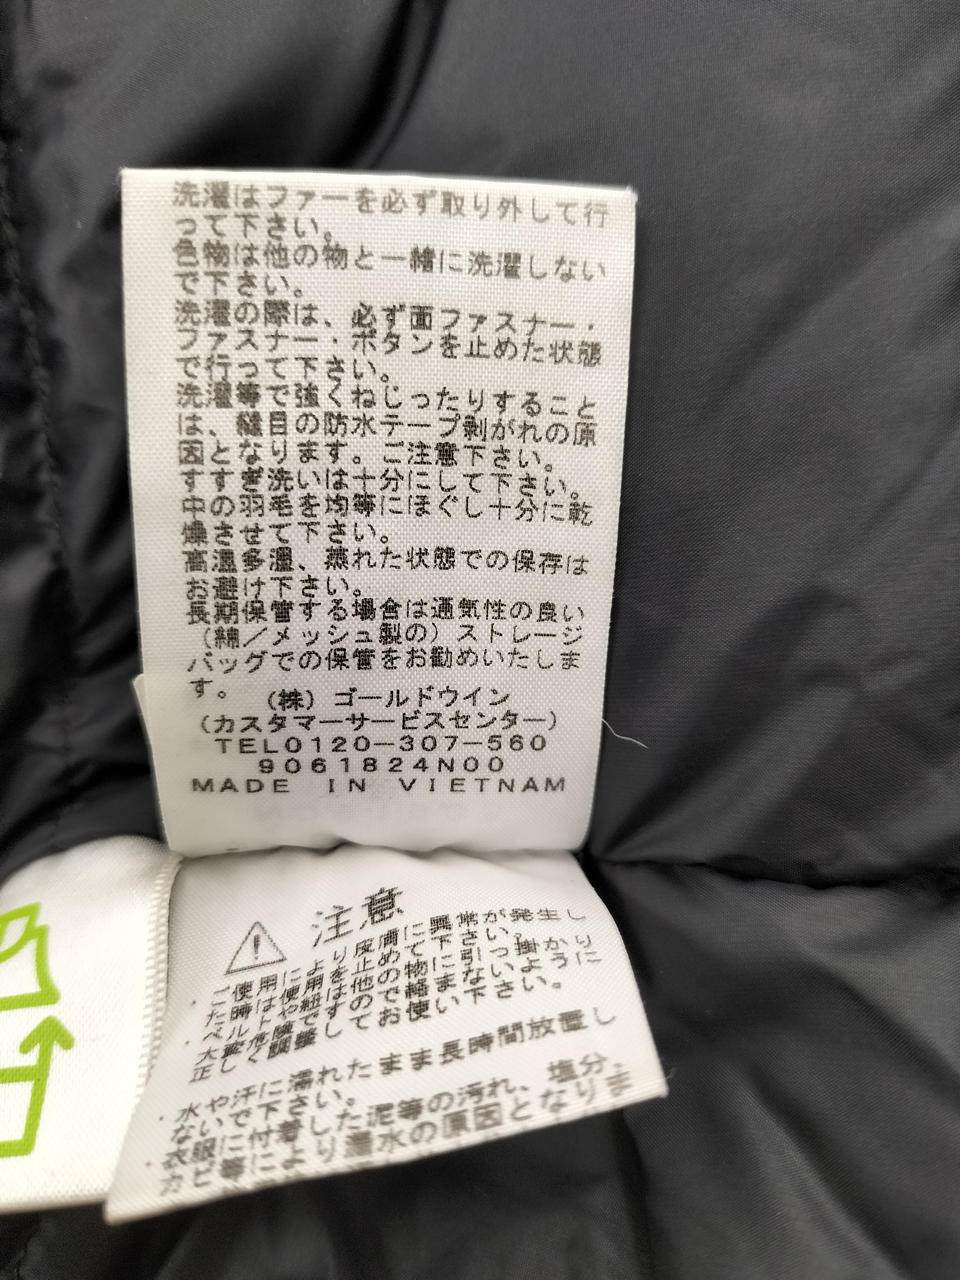 洗濯はファーを必ず取り外して行
って下さい。
色物は他の物と一緒に洗濯しない
で下さい。
洗濯の際は、必ず面ファスナー・
ファスナー・ボタンを止めた状態
で行って下さい。
洗濯等で強くねじったりすること
は、縫目の防水テープ剥がれの原
因となります。ご注意下さい。
すすぎ洗いは十分にして下さい。
中の羽毛を均等にほぐし十分に乾
燥させて下さい。
高温多湿、蒸れた状態での保存は
お避け下さい。
長期保管する場合は通気性の良い
（綿／メッシュ製の）ストレージ
バッグでの保管をお勧めいたしま
す。
（株）ゴールドウイン
（カスタマーサービスセンター）
TEL0120-307-560
9061824N00
MADE IN VIETNAM
注意
・ご使用により皮膚に異常が発生し
た時は使用を止めて下さい。
・ベルトや紐は他の物に引っ掛かり
大変危険ですので絡まないように
正しく調整してお使い下さい。
・水や汗に濡れたまま長時間放置し
ないで下さい。
・衣服に付着した泥等の汚れ、塩分、
カビ等により漏水の原因となりま